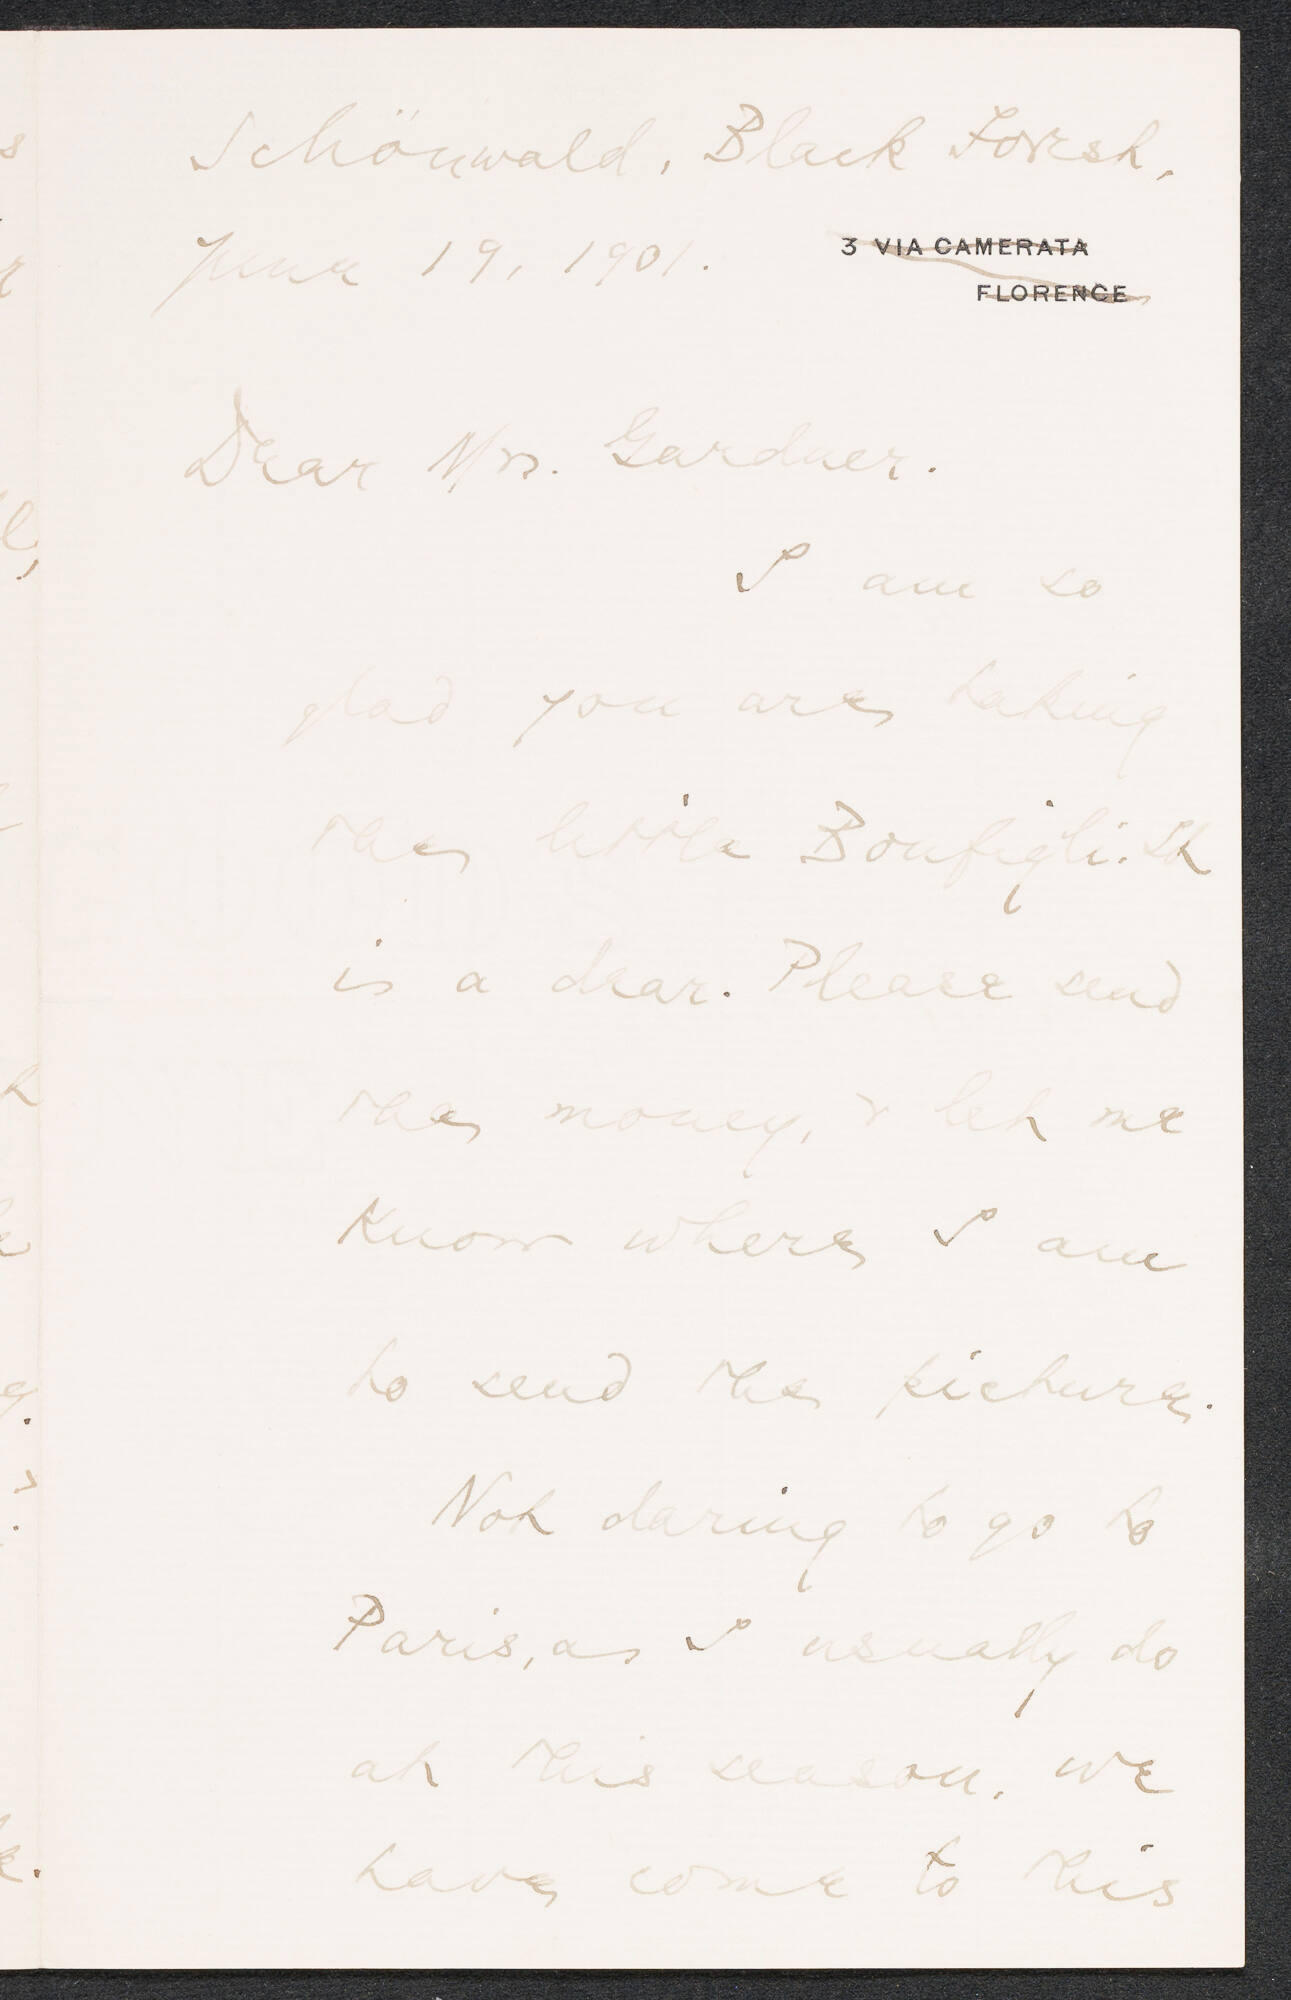 Schönwald, Black Forest,
June 19, 1901.
3 VIA CAMERATA
FLORENCE
Dear Mrs. Gardner.
I am so
glad you are taking
the little Bonfigli. It
is a dear. Please send
the money, & let me
know where I am
to send the picture.
Not daring to go to
Paris, as I usually do
at this season, we
have come to this